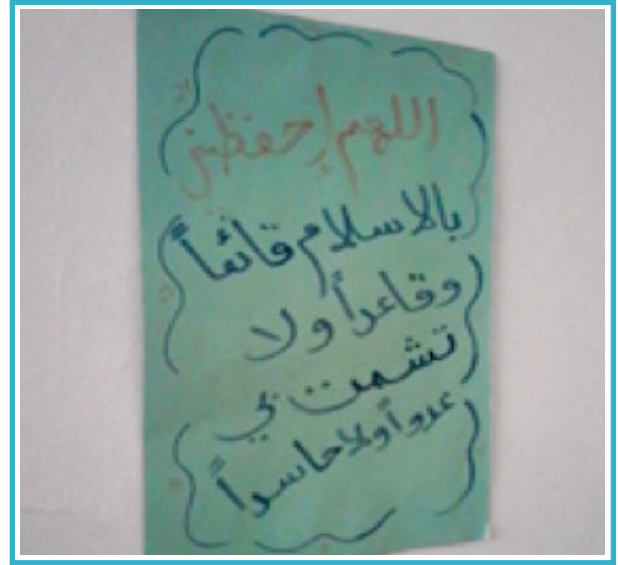 اللهم إحفظني
بالاسلام قائماً
وقاعداً ولا
تشمت بي
عدواً ولا حاسداً